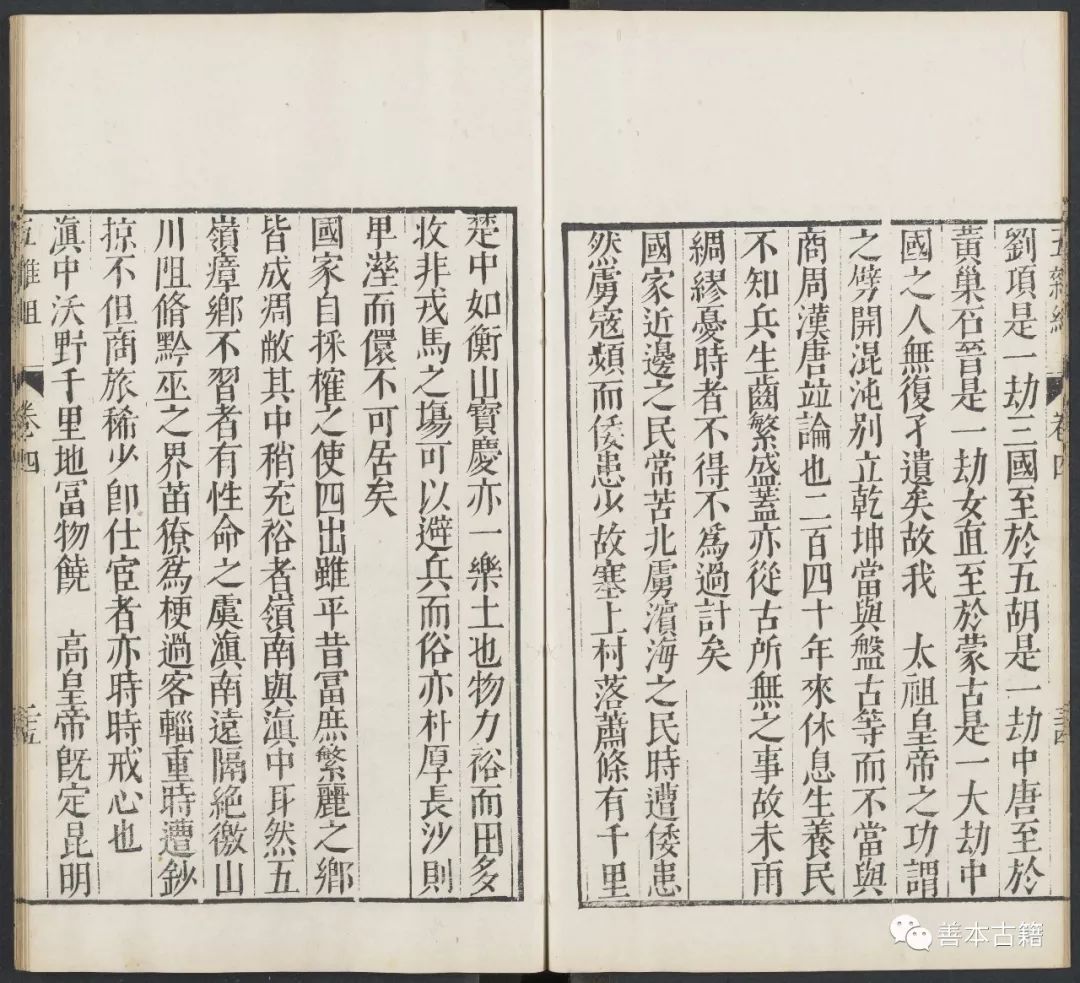 劉項是一劫三國至於五胡是一劫中唐至於
黃巢石晉是一劫女直至於蒙古是一大劫中
國之人無復孑遺矣故我　太祖皇帝之功謂
之劈開混沌別立乾坤當與盤古等而不當與
商周漢唐竝論也二百四十年來休息生養民
不知兵生齒繁盛蓋亦從古所無之事故未雨
綢繆憂時者不得不爲過計矣
國家近邊之民常苦北虜濱海之民時遭倭患
然虜寇頻而倭患少故塞上村落蕭條有千里
楚中如衡山寶慶亦一樂土也物力裕而田多
收非戎馬之場可以避兵而俗亦朴厚長沙則
卑溼而儇不可居矣
國家自採榷之使四出雖平昔富庶繁麗之鄉
皆成凋敝其中稍充裕者嶺南與滇中耳然五
嶺瘴鄉不習者有性命之虞滇南遠隔絶徼山
川阻脩黔巫之界苗獠爲梗過客輜重時遭鈔
掠不但商旅稀少卽仕宦者亦時時戒心也
滇中沃野千里地富物饒　高皇帝旣定昆明
五雜俎　卷四　三五
善本古籍